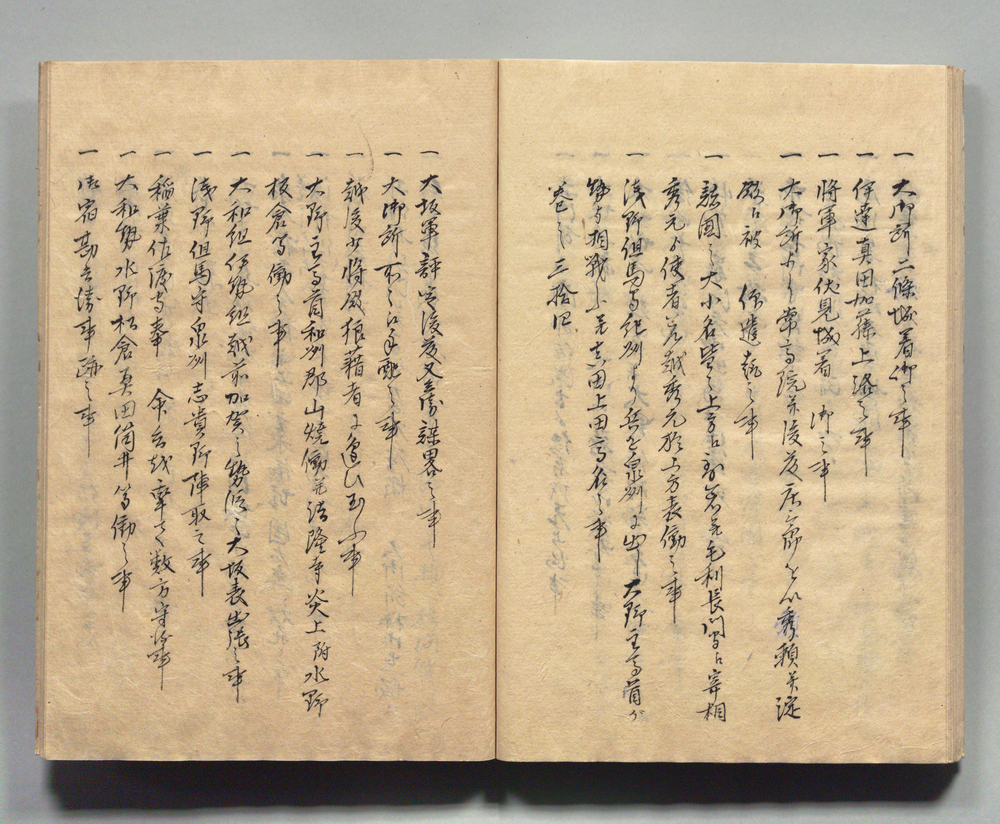 一 大御所二條城着御之事
一 伊達真田加藤上洛之事
一 将軍家伏見城着 御之事
一 大御所より常高院并後藤庄三郎を以秀頼并淀
殿江被 仰遣趣之事
一 諸国之大小名皆々上方江 毛利長門守江宰相
秀元より使者 秀元於上方表働之事
浅野但馬守紀州より兵を泉州に出 大野主馬首が
勢と相戦ふ并真田上田高名之事
巻之三拾四
一 大坂軍評定後藤又兵衛謀略之事
一 大御所所々江手配之事
一 越後少将殿狼藉者に逢ひ玉ふ事
一 大野主馬首和州郡山焼働并法隆寺炎上附水野
板倉等働之事
一 大和組伊勢組越前加賀之勢段々大坂表出張之事
一 浅野但馬守泉州志貴野陣取之事
一 稲葉佐渡守奉 命 数方守 事
一 大和勢水野松倉真田筒井等働之事
一 御宿勘兵衛事跡之事